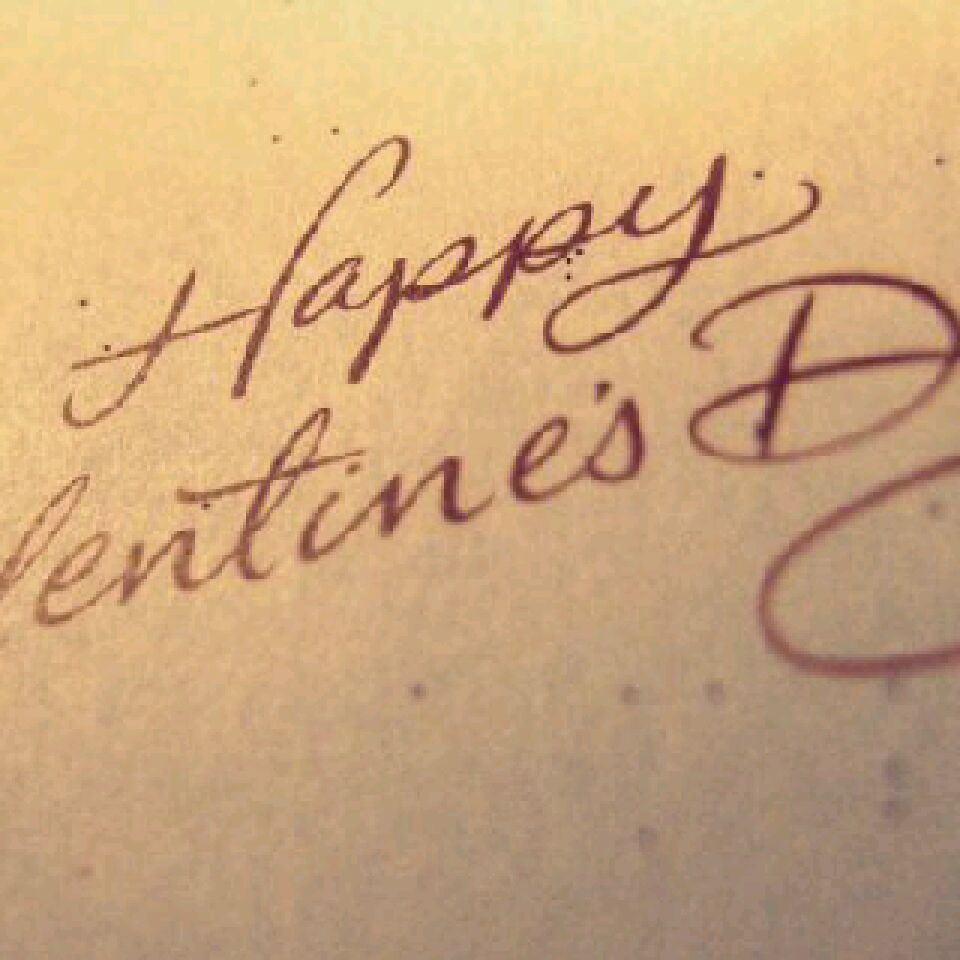 Happy
lentine's D